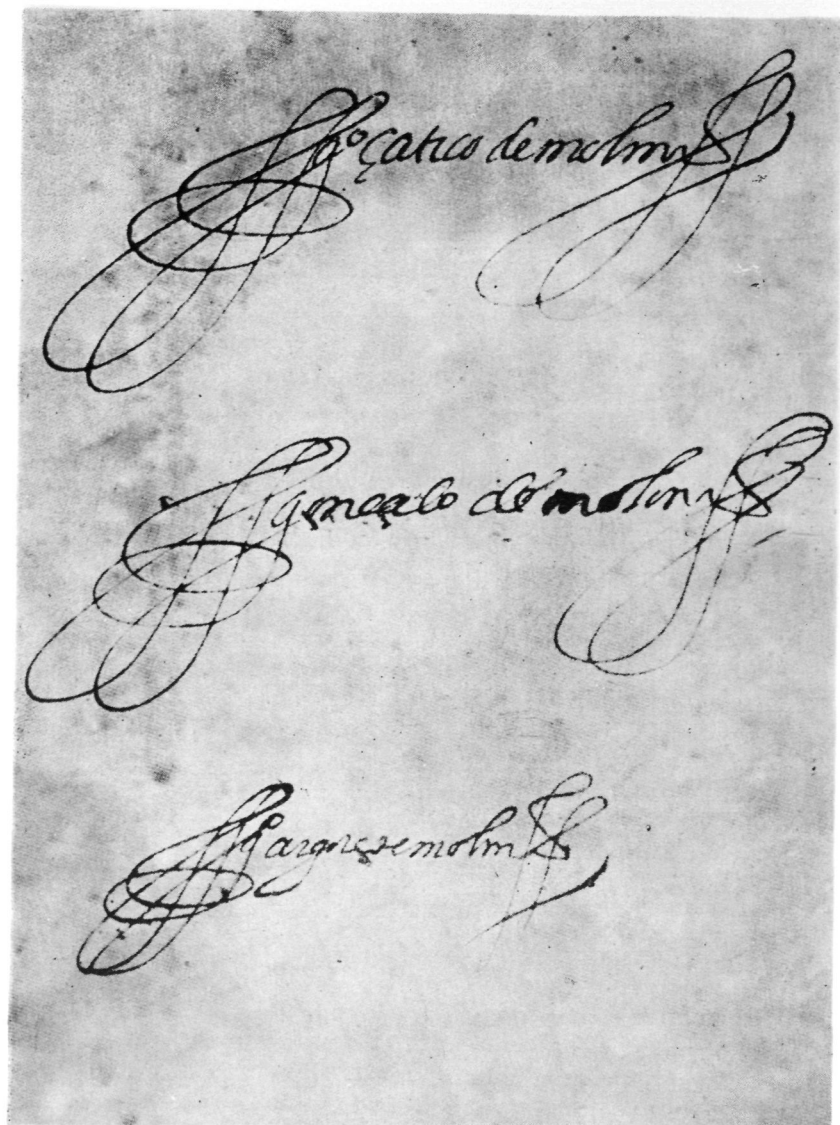 g.º çatico de molina
gonçalo de molina
g.º argote de molina